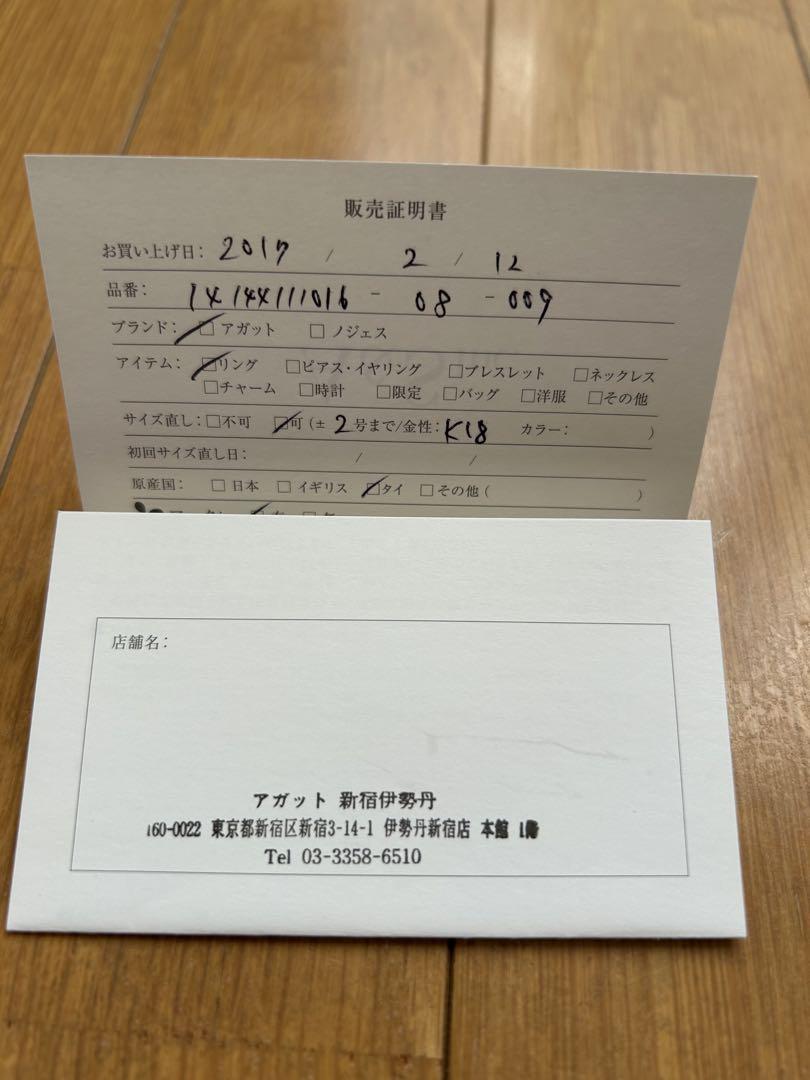 販売証明書
お買い上げ日: 2017 / 2 / 12
品番: 14144111016 - 08 - 009
ブランド: □ アガット □ ノジェス
アイテム: □リング □ピアス・イヤリング □ブレスレット □ネックレス
□チャーム □時計 □限定 □バッグ □洋服 □その他
サイズ直し: □不可 □可 (± 2 号まで/金性: K18 カラー: )
初回サイズ直し日: / /
原産国: □ 日本 □ イギリス □タイ □その他 ( )
店舗名:
アガット 新宿伊勢丹
160-0022 東京都新宿区新宿3-14-1 伊勢丹新宿店 本館 1階
Tel 03-3358-6510